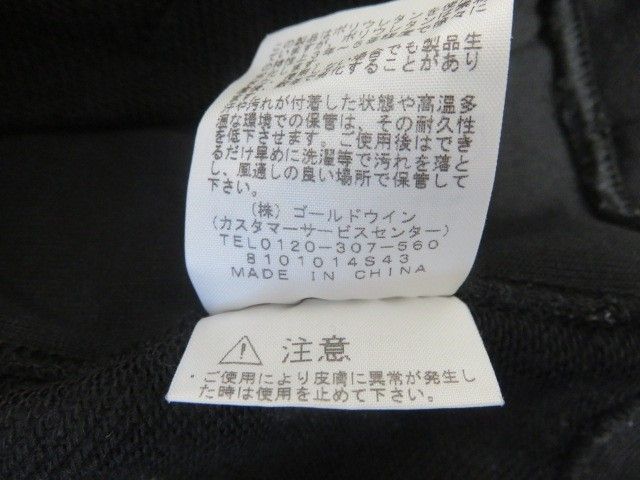 この製品はポリウレタンを
化することがあり
合でも製品生
汚れが付着した状態や高温多
な環境での保管は、その耐久性
を低下させます。ご使用後はでき
るだけ早めに洗濯等で汚れを落と
し、風通しの良い場所で保管して
下さい。
(株) ゴールドウイン
(カスタマーサービスセンター)
TEL0120-307-560
8101014S43
MADE IN CHINA
注意
ご使用により皮膚に異常が発生し
た時は使用を止めて下さい。